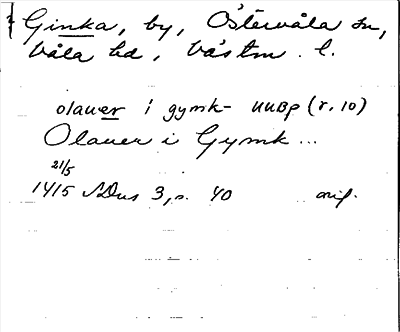 Ginka, by, Östervåla sn,
Våla hd, Västm. l.
olauer i gymk- uuBp (r. 10)
Olauer i Gymk...
21/5
1415 SDns 3, s. 40 orig.